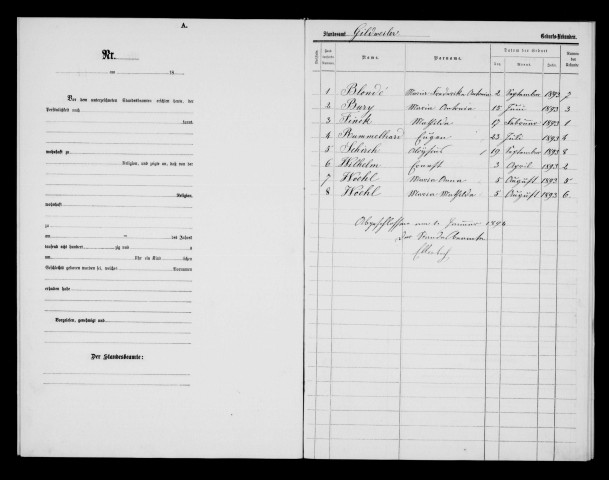 A.
Nr.
Vor dem unterzeichneten Standesbeamten erschien heute, der
Persönlichkeit nach
kannt,
wohnhaft zu
Religion, und zeigte an, daß von der
Religion,
wohnhaft
zu
am ten des Jahres
tausend acht hundert zig und
um Uhr ein Kind lichen
Geschlechts geboren worden sei, welches Vornamen
erhalten habe
Vorgelesen, genehmigt und
Der Standesbeamte:
Standesamt Gildweiler Geburts-Urkunden.
Datum der Geburt
Name. Vorname. Tag. Monat. Jahr.
1 Blondé Maria 2 September 1893 7
2 Bury Maria Antonia 15 Juni 1893 3
3 Finck Mathilda 17 1893 1
4 Rummelhard Eugen 23 Juli 1893 4
5 Schirch Aloysius 19 September 1893 8
6 Wilhelm Ernest 3 April 1893 2
7 Woehl Maria Anna 5 August 1893 5
8 Woehl Maria Mathilda 5 August 1893 6
Abgeschlossen am 1. Januar 1894
Der Standesbeamte